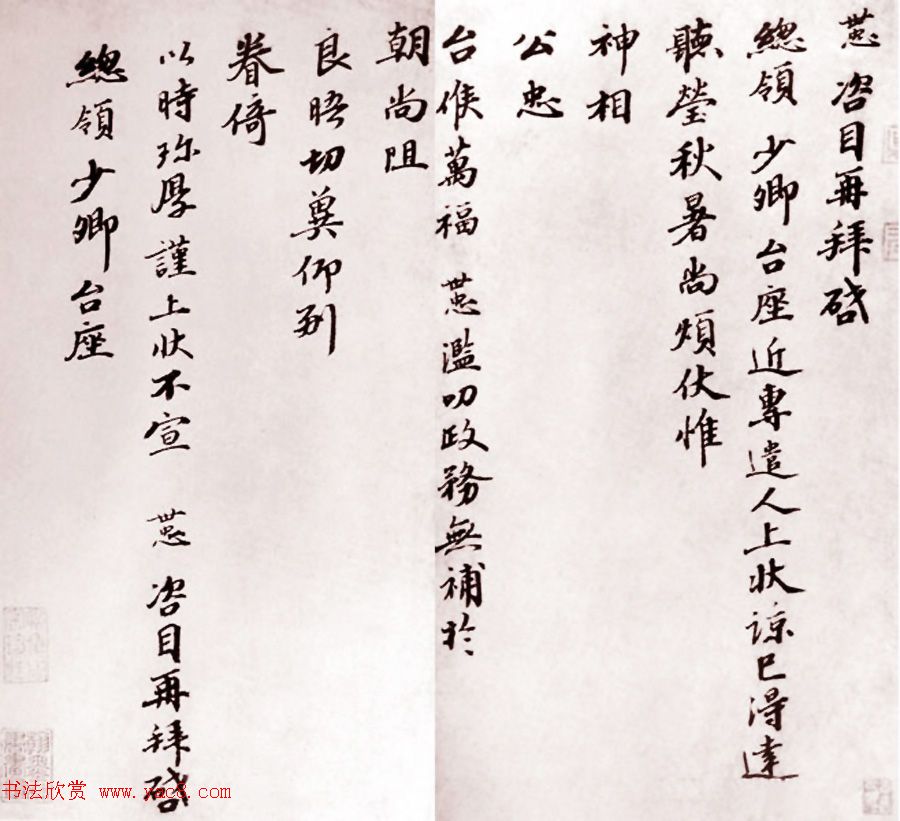 咨目再拜啓
總領少卿台座近專遣人上狀諒已得達
聽瑩秋暑尚煩伏惟
神相
公忠
台候萬福 濫叨政務無補於
朝尚阻
良晤切冀仰副
眷倚
以時珎厚謹上狀不宣 咨目再拜啓
總領少卿台座
书法欣赏 www.yac8.com